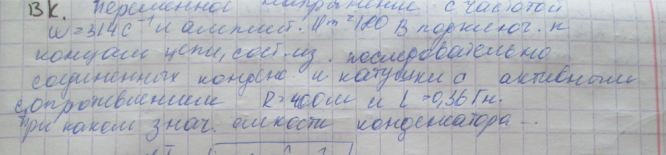 ВК. Переменное напряжение с частотой
W=314 с⁻¹ и амплит. Um=180 В подключ. к
концам цепи, сост. из. последовательно
соединенных конденс. и катушки с активным
сопротивлением R=40Ом и L=0,36Гн.
При каком знач. емкости конденсатора...